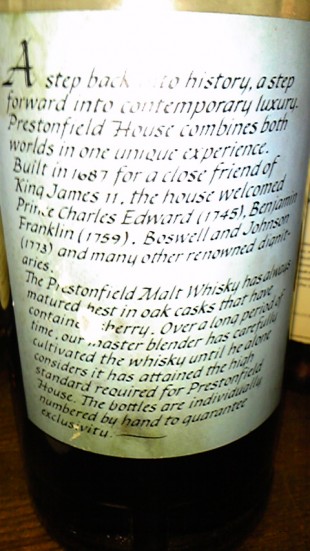 A step back to history, a step
forward into contemporary luxury.
Prestonfield House combines both
worlds in one unique experience.
Built in 1687 for a close friend of
King James 11, the house welcomed
Prince Charles Edward (1745), Benjamin
Franklin (1759), Boswell and Johnson
(1773) and many other renowned dignit-
aries.
The Prestonfield Malt Whisky has always
matured best in oak casks that have
contained sherry. Over a long period of
time, our master blender has carefully
cultivated the whisky until he alone
considers it has attained the high
standard required for Prestonfield
House. The bottles are individually
numbered by hand to guarantee
exclusivity.